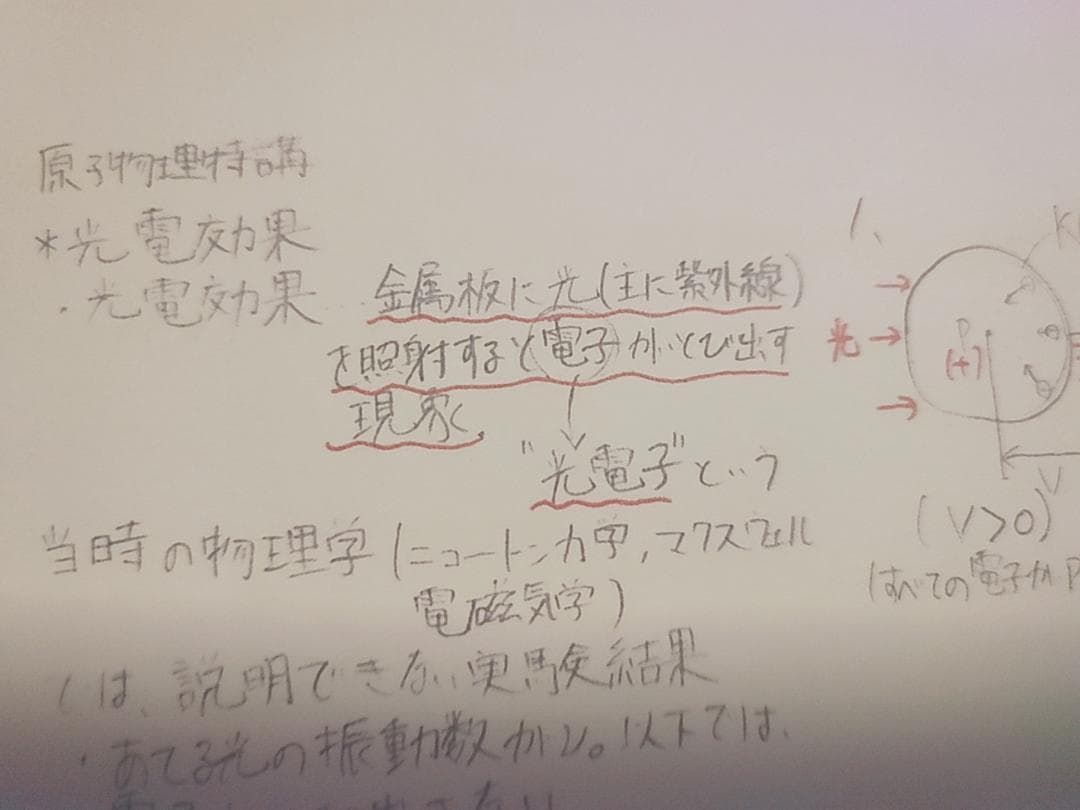 原子物理特講
*光電効果
・光電効果
金属板に光(主に紫外線)
を照射すると電子がとび出す
現象。
"光電子"という
当時の物理学(ニュートン力学,マクスウェル
電磁気学)
では、説明できない実験結果
・あてる光の振動数がν。以下では、
1、
K
光
P
(+)
V
(V>0)
(すべての電子がP